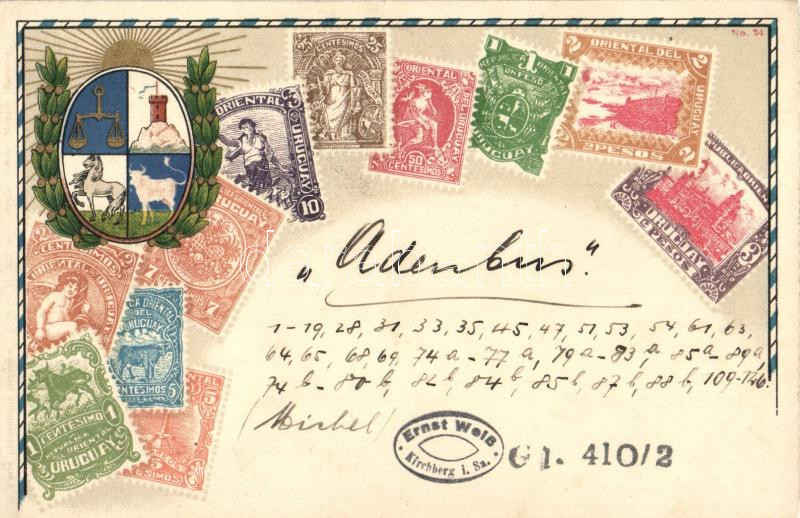 No. 24.
25 CENTESIMOS 25
ORIENTAL DEL URUGUAY
50 CENTESIMOS
1 REPUBLICA ORIENTAL 1
UN PESO
URUGUAY
2 ORIENTAL DEL URUGUAY
2 PESOS 2
REPUBLICA ORIENTAL
URUGUAY
3 PESOS
ORIENTAL
URUGUAY
10
URUGUAY
7 7
2 CENTESIMOS
ORIENTAL URUGUAY
ORIENTAL
DEL
URUGUAY
CENTESIMOS 5
1 CENTESIMO
REPUBLICA ORIENTAL
URUGUAY
5
CENTESIMOS
„Adenbus."
1-19, 28, 31, 33, 35, 45, 47, 51, 53, 54, 61, 63,
64, 65, 68, 69, 74a - 77a, 79a - 83a, 85a - 89a,
74b - 80b, 82b, 84b, 85b, 87b, 88b, 109-126.
(Michel)
Ernst Weiß
Kirchberg i. Sa.
G1. 410/2